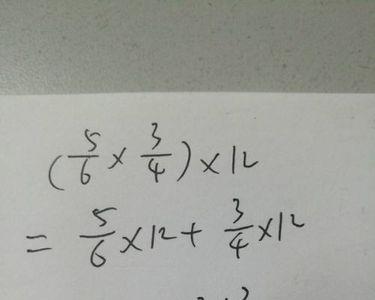 (5/6 × 3/4) × 12
= 5/6 × 12 + 3/4 × 12